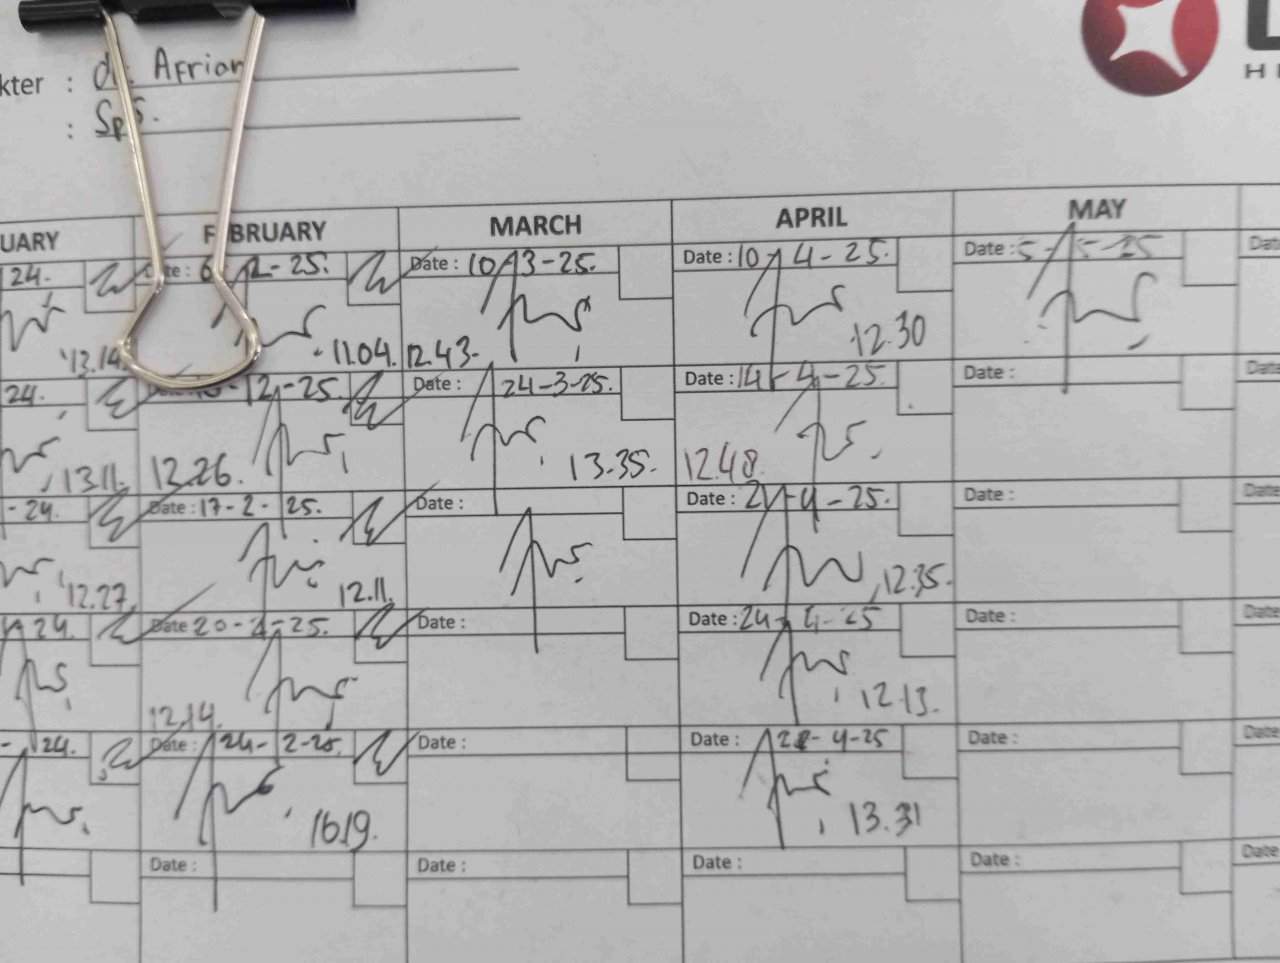 kter : dr. Afrian
: SpS.
UARY FEBRUARY MARCH APRIL MAY
24. Date : 6 -2-25. Date : 10-3-25. Date : 10-4-25. Date : 5-5-25
13.14 11.04. 12.43. 12.30
24. -2-25. Date : 24-3-25. Date : 14-4-25. Date :
13.11. 12.26. 13.35. 12.48.
-24. Date : 17-2-25. Date : Date : 21-4-25. Date :
12.27 12.11. 12.35.
24. Date 20-2-25. Date : Date : 24-4-25 Date :
12.14. 12.13.
- 24. Date : 24-2-25. Date : Date : 28-4-25 Date :
16.19. 13.31
Date : Date : Date : Date :